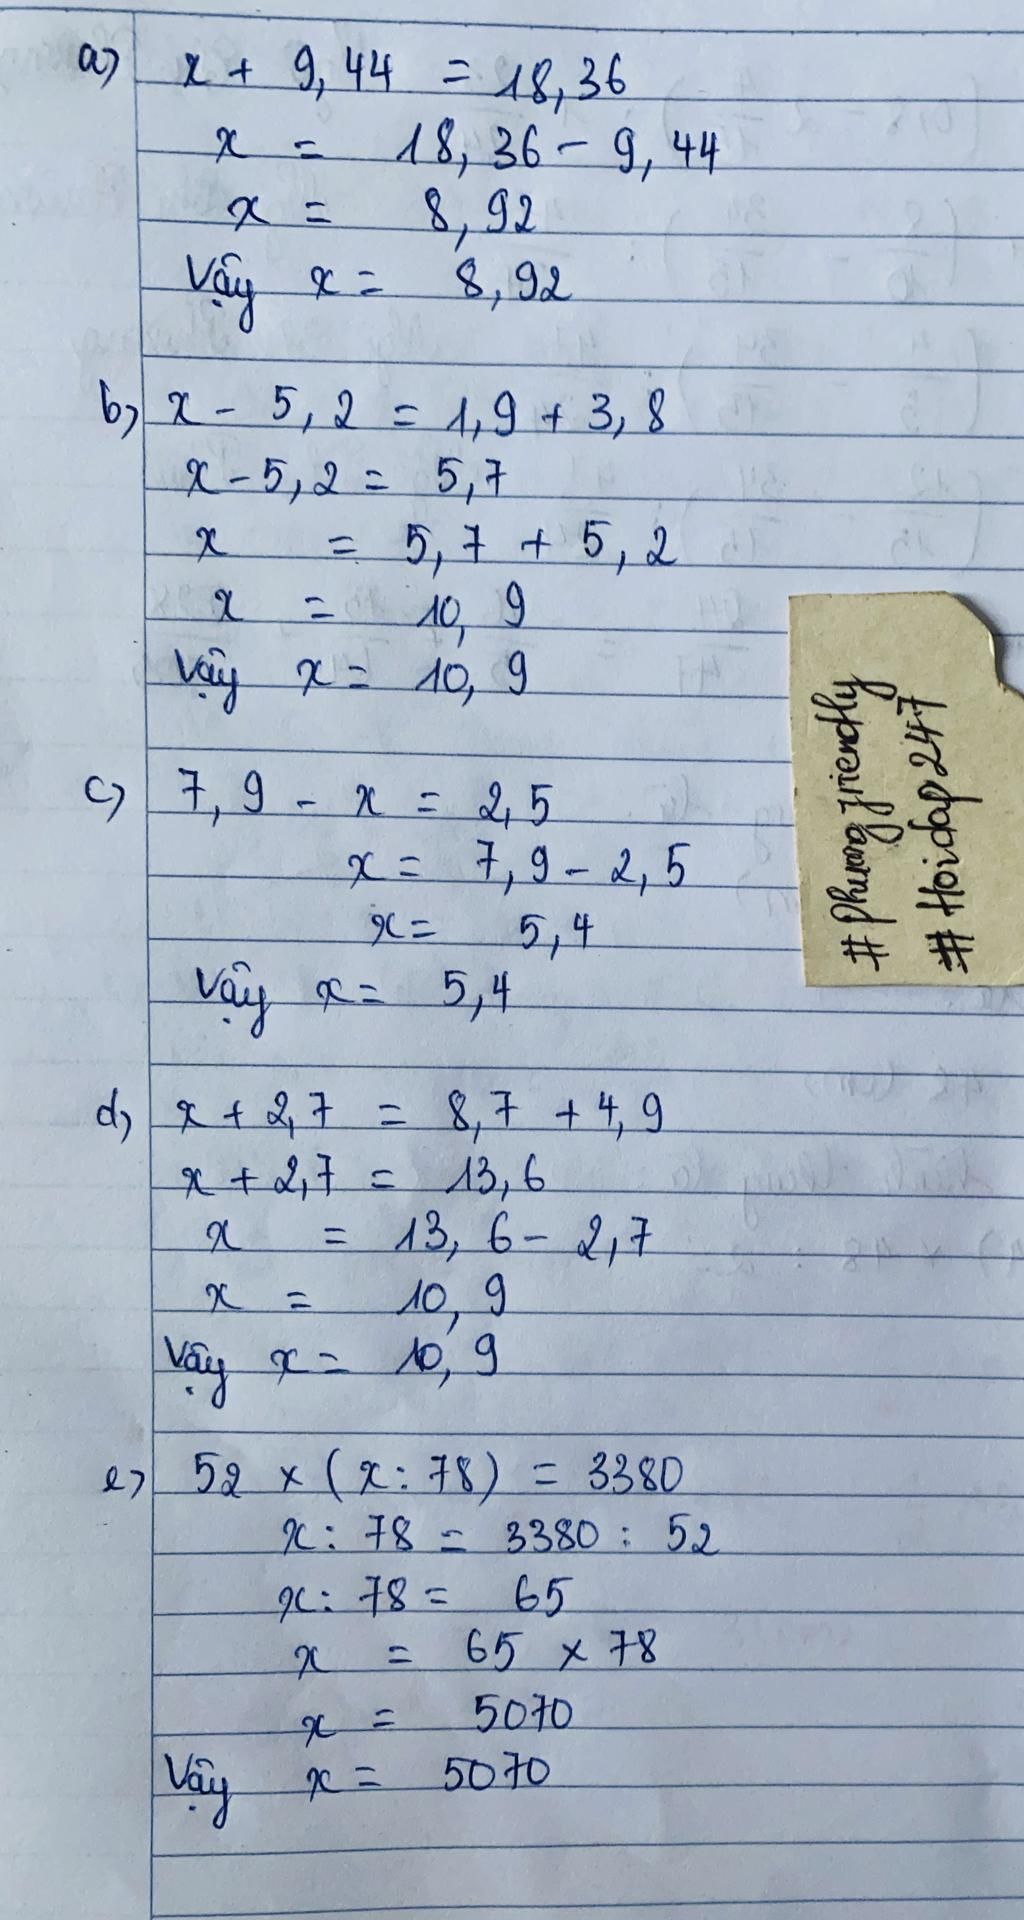 a) x + 9,44 = 18,36
x = 18,36 - 9,44
x = 8,92
Vậy x = 8,92
b) x - 5,2 = 1,9 + 3,8
x - 5,2 = 5,7
x = 5,7 + 5,2
x = 10,9
Vậy x = 10,9
c) 7,9 - x = 2,5
x = 7,9 - 2,5
x = 5,4
Vậy x = 5,4
d) x + 2,7 = 8,7 + 4,9
x + 2,7 = 13,6
x = 13,6 - 2,7
x = 10,9
Vậy x = 10,9
e) 52 × (x : 78) = 3380
x : 78 = 3380 : 52
x : 78 = 65
x = 65 × 78
x = 5070
Vậy x = 5070
# Hoidap247